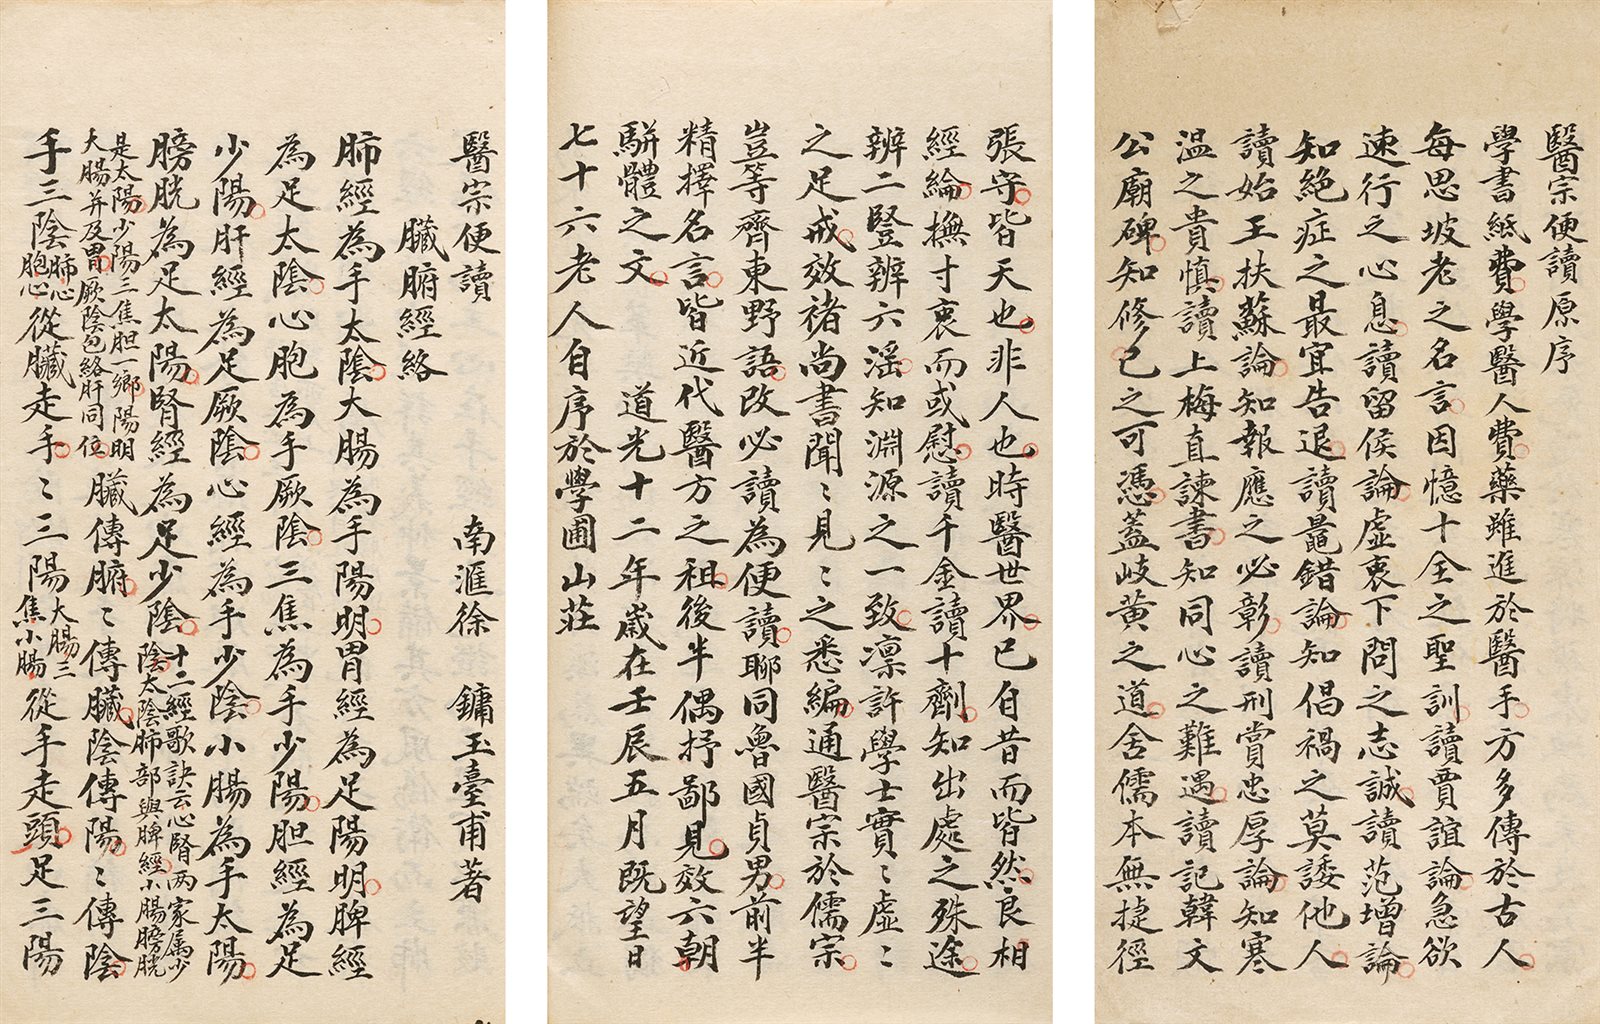 醫宗便讀原序
學書紙費學醫人費藥雖進於醫手方多傳於古人
每思坡老之名言因憶十全之聖訓讀賈誼論急欲
速行之心息讀留侯論虛衷下問之志誠讀范增論
知絕症之最宜告退讀鼂錯論知倡禍之莫諉他人
讀始王扶蘇論知報應之必彰讀刑賞忠厚論知寒
溫之貴慎讀上梅直諫書知同心之難遇讀記韓文
公廟碑知修己之可憑蓋岐黃之道舍儒本無捷徑
張守皆天也非人也時醫世界已自昔而皆然良相
經綸撫寸衷而或慰讀千金讀十劑知出處之殊途
辨二豎辨六淫知淵源之一致凛許學士實〻虛〻
之足戒效褚尚書聞〻見〻之悉編通醫宗於儒宗
豈等齊東野語改必讀為便讀聊同魯國貞男前半
精擇名言皆近代醫方之祖後半偶抒鄙見效六朝
駢體之文 道光十二年歲在壬辰五月既望日
七十六老人自序於學圃山莊
醫宗便讀 南滙徐 鏞玉臺甫著
臟腑經絡
肺經為手太陰大腸為手陽明胃經為足陽明脾經
為足太陰心胞為手厥陰三焦為手少陽胆經為足
少陽肝經為足厥陰心經為手少陰小腸為手太陽
膀胱為足太陽腎經為足少陰十二經歌訣云心腎两家属少
陰太陰肺部與脾經小腸膀胱
是太陽少陽三焦胆一鄉陽明
大腸并及胃厥陰包絡肝同位臟傳腑〻傳臟陰傳陽〻傳陰
手三陰肺心
胞心從臟走手〻三陽大腸三
焦小腸從手走頭足三陽